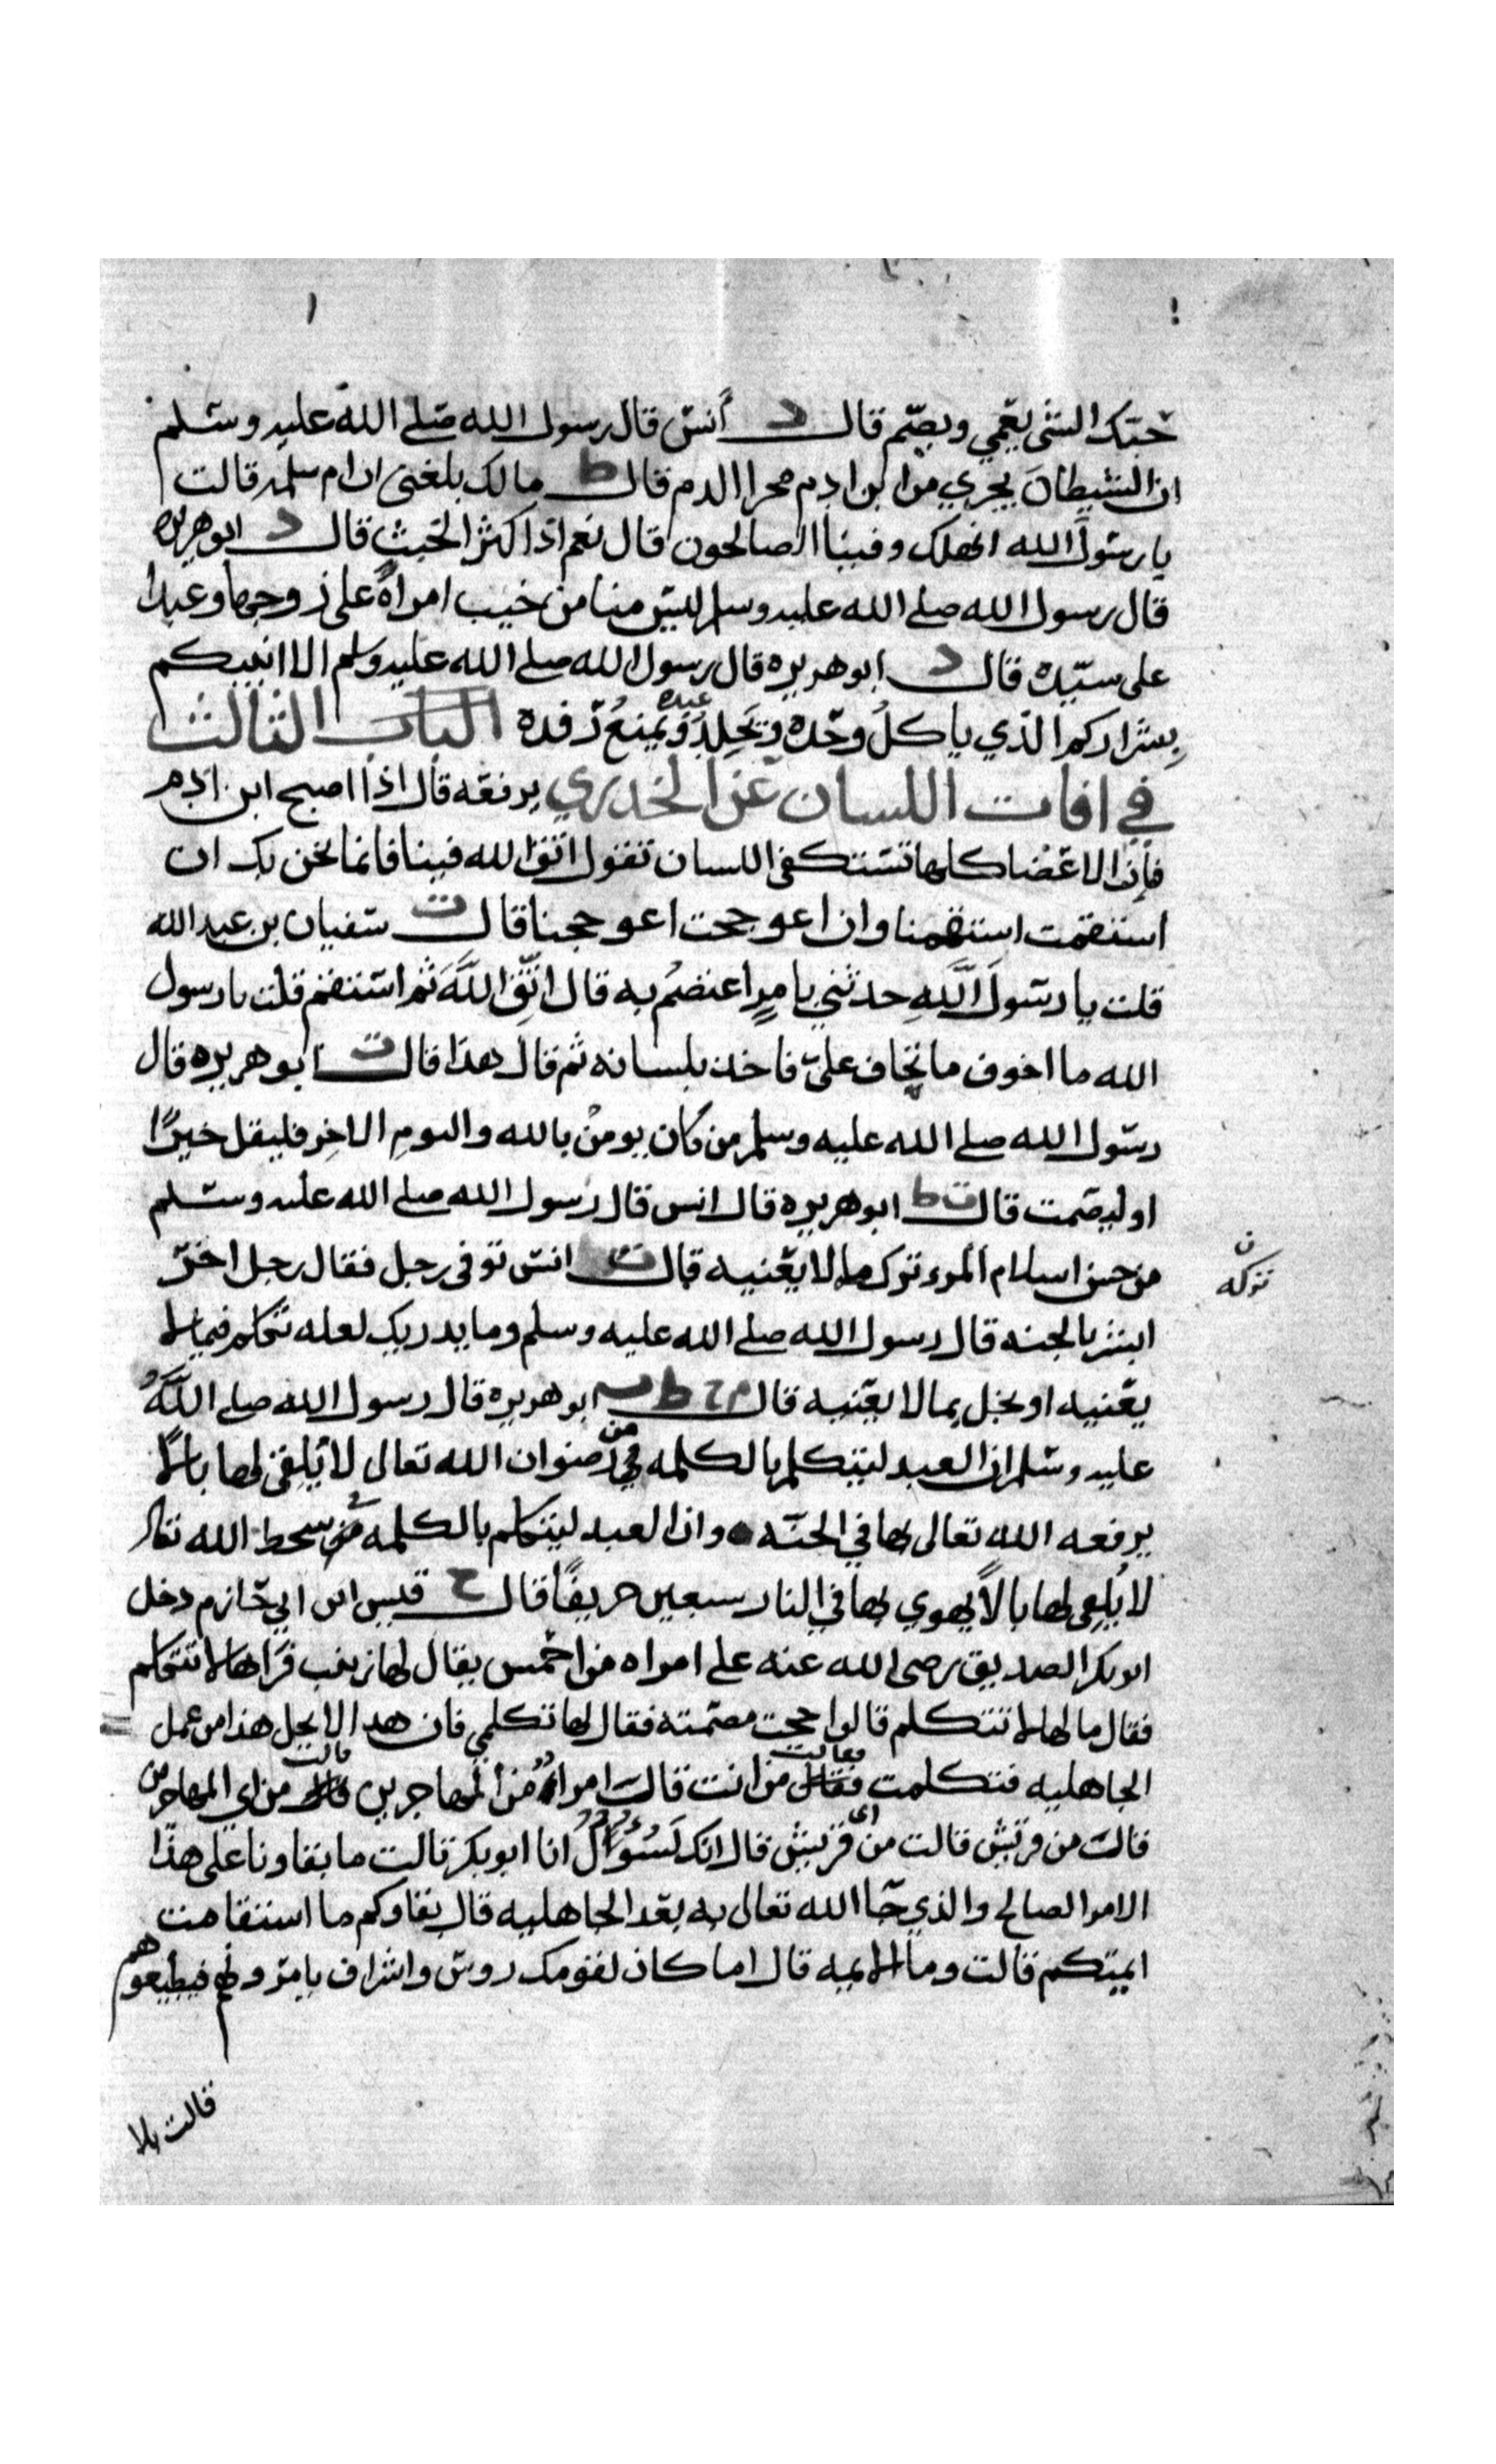 حبّك الشي يعمي ويصّم قال د أنس قال رسول الله صلى الله عليه وسلم
ان الشيطان يجري من ابن ادم مجرا الدم قال ط مالك بلغني ان ام سلمه قالت
يا رسول الله انهلك وفينا الصالحون قال نعم اذا كثر الخبث قال د ابو هريره
قال رسول الله صلى الله عليه وسلم ليس منا من خبب امراة على زوجها وعبدا
على سيّده قال د ابو هريره قال رسول الله صلى الله عليه وسلم الا انبيكم
بشراركم الذي ياكل وحده ويجلد عبده ويمنع رفده الباب الثالث
في افات اللسان عن الخدري يرفعه قال اذا اصبح ابن ادم
فان الاعضا كلها تستكفي اللسان تقول اتق الله فينا فانما نحن بك ان
استقمت استقمنا وان اعوججت اعوججنا قال ت سفيان بن عبد الله
قلت يا رسول الله حدثني بامرٍ اعتصم به قال اتّق الله ثم استقم قلت يا رسول
الله ما اخوف ما تخاف عليّ فاخذ بلسانه ثم قال هذا قال ت ابو هريره قال
رسول الله صلى الله عليه وسلم من كان يومن بالله واليوم الاخر فليقل خيرًا
او ليصمت قال ت ط ابو هريره قال انس قال رسول الله صلى الله عليه وسلم
من حسن اسلام المرء ترك ما لا يعنيه قال ت انس توفى رجل فقال رجل اخر
ن تركه
ابشر بالجنه قال رسول الله صلى الله عليه وسلم وما يدريك لعله تكلم فيما لا
يعنيه او بخل بما لا يعنيه قال م خ ط ت ابو هريره قال رسول الله صلى الله
عليه وسلم ان العبد ليتكلم بالكلمه من رضوان الله تعالى لا يلقى لها بالا
يرفعه الله تعالى بها في الجنّه وان العبد ليتكلم بالكلمه من سخط الله تعالى
لا يلقى لها بالاً يهوي بها في النار سبعين خريفًا قال خ قيس ابن ابي حازم دخل
ابو بكر الصديق رضى الله عنه على امراه من احمس يقال لها زينب فراها لا تتكلم
فقال ما لها لا تتكلم قالوا حجت مصمته فقال لها تكلمي فان هدا لا يحل هذا من عمل
الجاهليه فتكلمت فقالت من انت قال امراة من المهاجرين قالت من اي المهاجرين
قال من قريش قالت من اى قريش قال انك لسؤال انا ابو بكر قالت ما بقاونا على هذا
الامر الصالح والذي جّا الله تعالى به بعد الجاهليه قال بقاوكم ما استقامت
ايمتكم قالت وما الايمه قال اما كان لقومك روس واشراف يامرونهم فيطيعوهم
قالت بلا